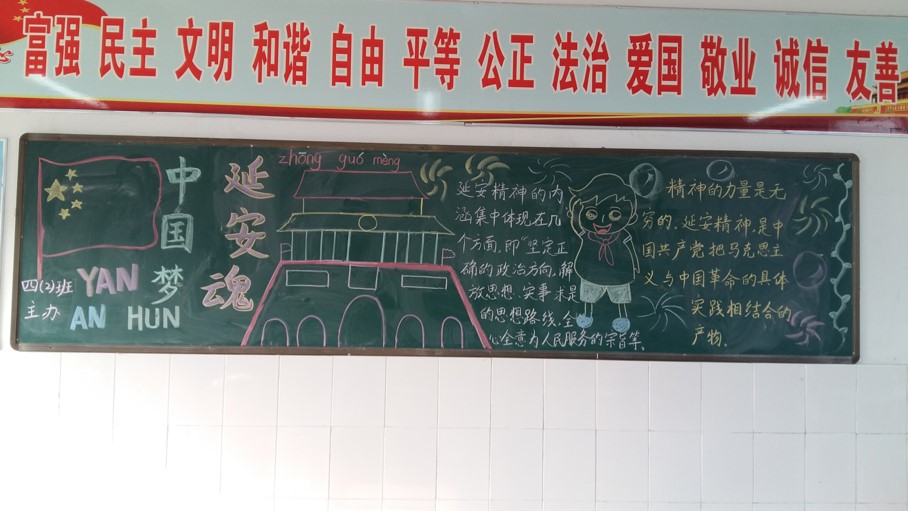 富强 民主 文明 和谐 自由 平等 公正 法治 爱国 敬业 诚信 友善
中国梦
延安魂
zhōng guó mèng
四(2)班
主办
YAN
AN HUN
延安精神的内
涵集中体现在几
个方面,即“坚定正
确的政治方向,解
放思想、实事求是
的思想路线,全
心全意为人民服务的宗旨等.
精神的力量是无
穷的.延安精神,是中
国共产党把马克思主
义与中国革命的具体
实践相结合的
产物.